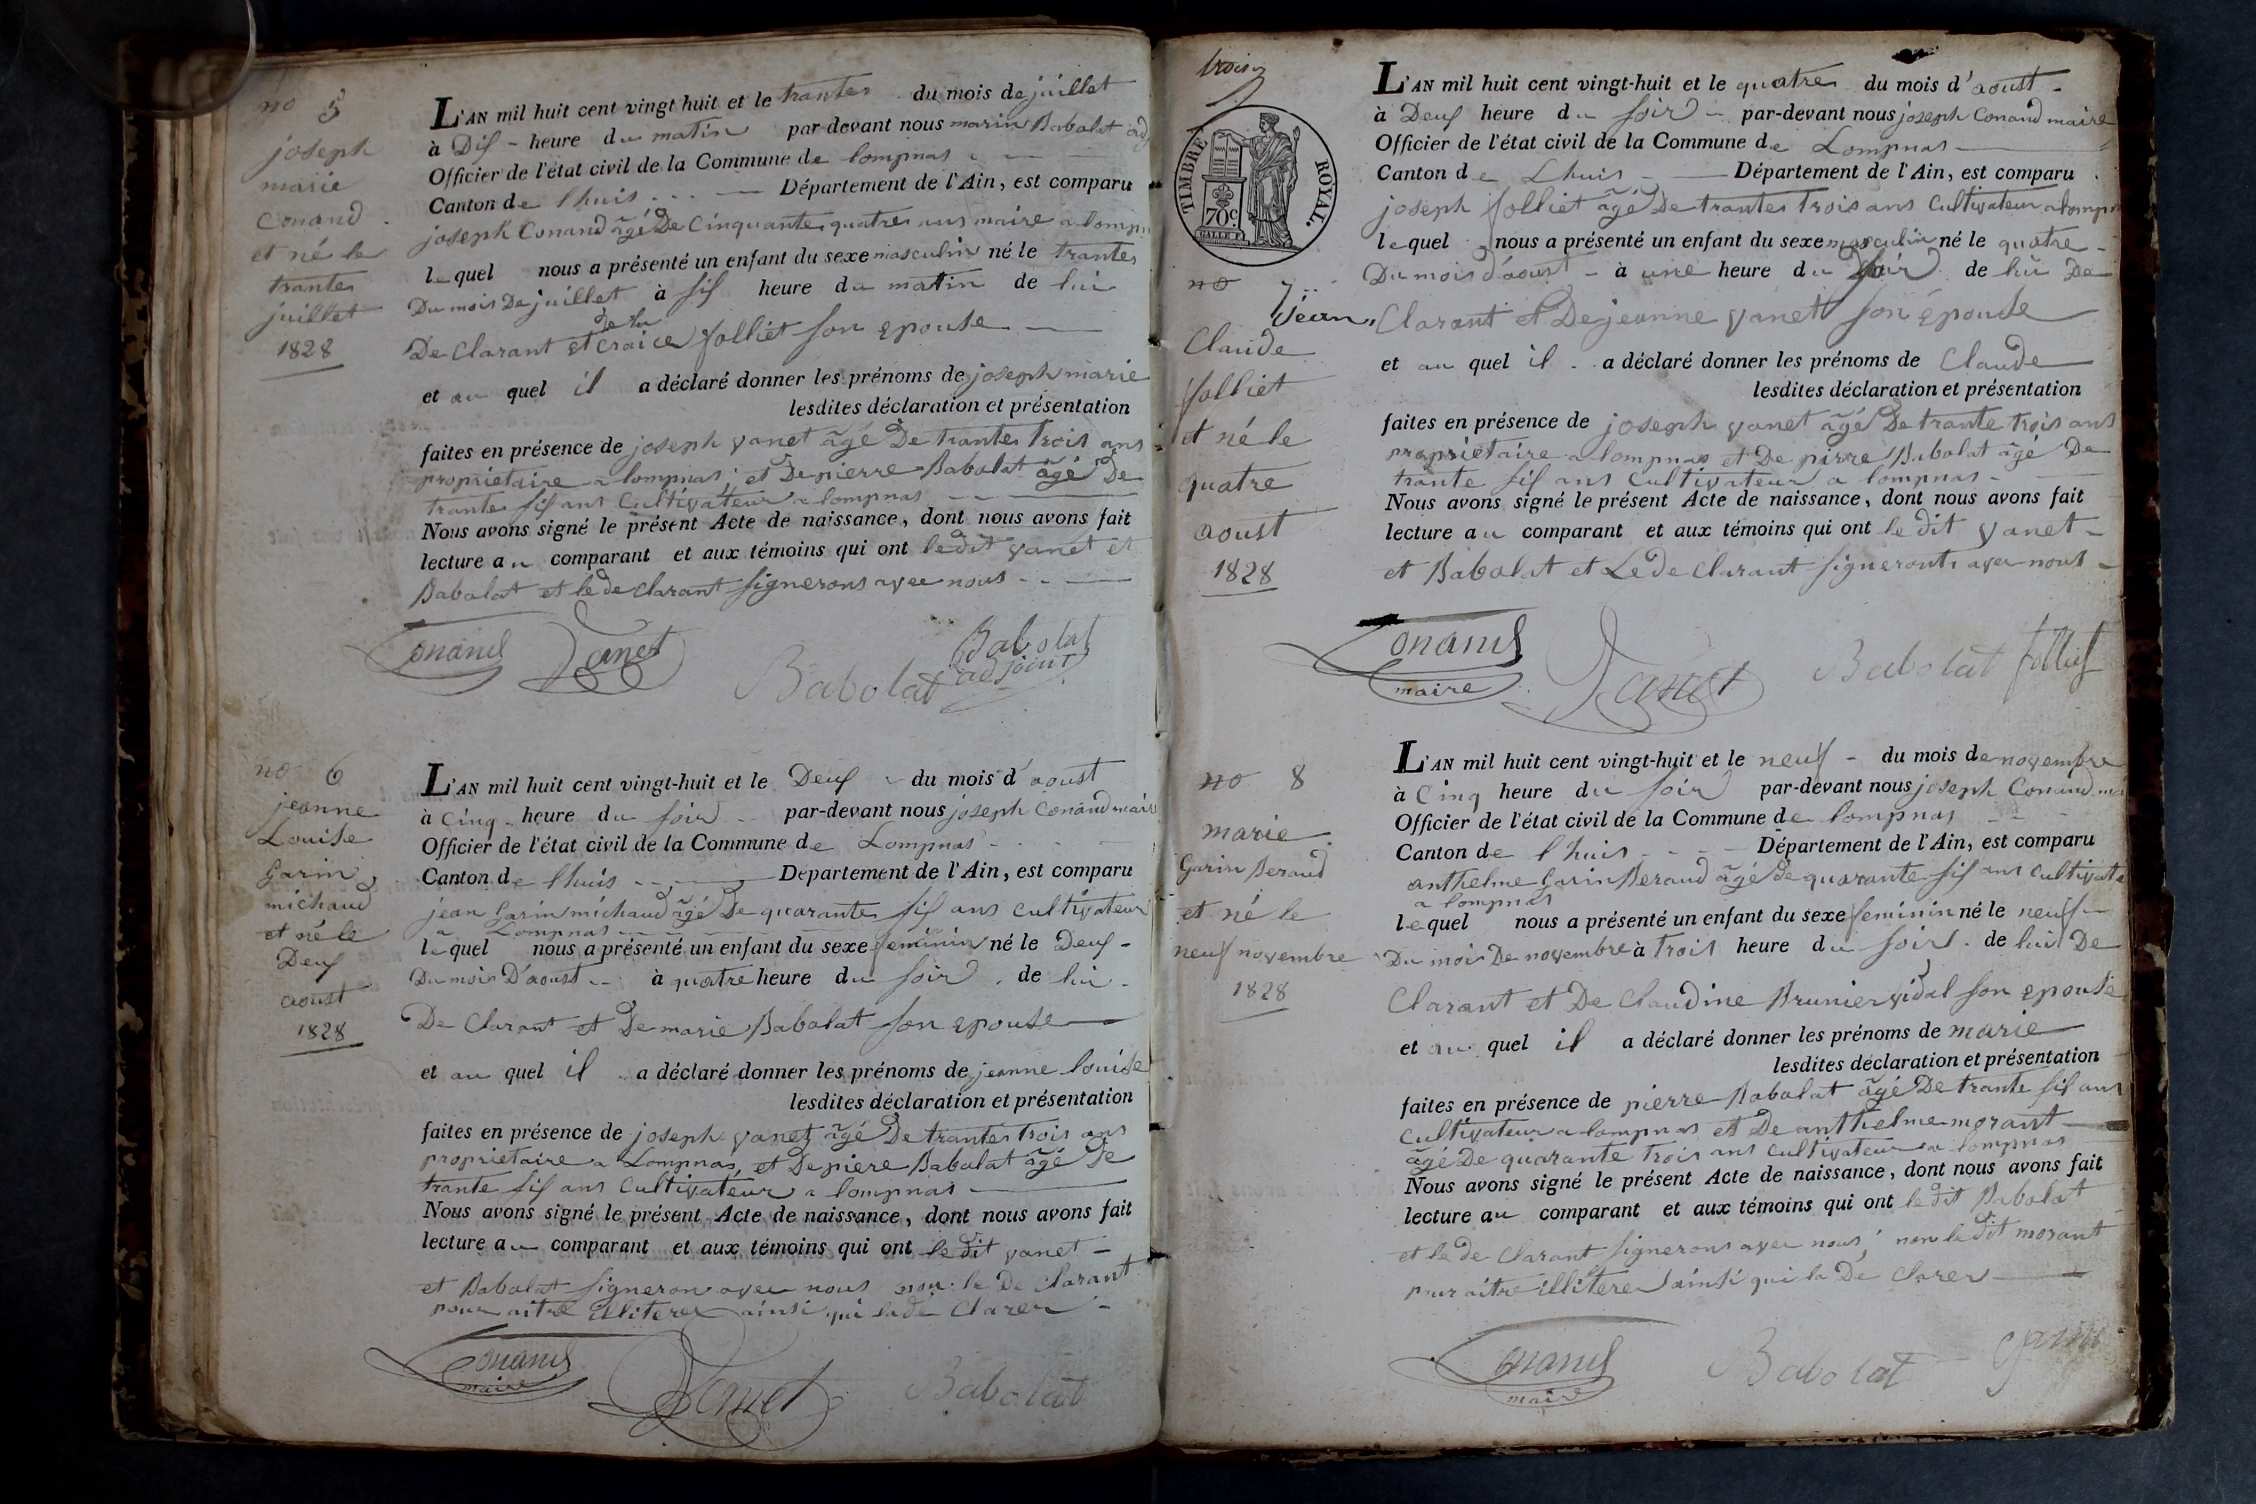 no 5
joseph
marie
Conand
et né le
trantes
juillet
1828
L'AN mil huit cent vingt huit et le trantes du mois de juillet
à Dis - heure du matin par-devant nous marin Babolat adj
Officier de l'état civil de la Commune de lompnas
Canton de lhuis - Département de l'Ain, est comparu
joseph Conand âgé De Cinquante quatres ans maire a lompn
lequel nous a présenté un enfant du sexe masculin né le trantes
Du mois De juillet à sis heure du matin de lui
De Clarant et de la Craice folliet son epouse
et au quel il a déclaré donner les prénoms de joseph marie
lesdites déclaration et présentation
faites en présence de joseph vanet âgé De trantes trois ans
propriétaire a lompnas, et De pierre Babolat âgé De
trante sis ans Cultivateur a lompnas
Nous avons signé le présent Acte de naissance, dont nous avons fait
lecture au comparant et aux témoins qui ont le dit vanet et
Babolat et le de Clarant signerons avec nous
Conand Vanet Babolat Babolat
adjoint
no 6
jeanne
Louise
Garin
michaud
et né le
Deus
aoust
1828
L'AN mil huit cent vingt-huit et le Deus du mois d'aoust
à Cinq heure du soir par-devant nous joseph Conand maire
Officier de l'état civil de la Commune de Lompnas
Canton de lhuis Département de l'Ain, est comparu
jean Garin michaud âgé De quarantes sis ans cultivateur
a Lompnas
lequel nous a présenté un enfant du sexe feminin né le Deus -
Du mois D'aoust à quatre heure du soir de lui -
De Clarant et De marie Babolat son epouse
et au quel il a déclaré donner les prénoms de jeanne louise
lesdites déclaration et présentation
faites en présence de joseph vanet âgé De trantes trois ans
proprietaire a Lompnas, et De piere Babolat âgé De
trante sis ans Cultivateur a lompnas
Nous avons signé le présent Acte de naissance, dont nous avons fait
lecture au comparant et aux témoins qui ont le dit vanet -
et Babolat signeron avec nous non le De Clarant
pour aitre illiterer ainsi qui la de Clarer
Conand
maire
Vanet Babolat
trois
TIMBRE ROYAL.
70c.
GALLE F.
no 7
jean,,
Claude
folliet
et né le
quatre
aoust
1828
L'AN mil huit cent vingt-huit et le quatres du mois d'aoust -
à Deus heure du soir - par-devant nous joseph Conand maire
Officier de l'état civil de la Commune de Lompnas
Canton de Lhuis Département de l'Ain, est comparu
joseph folliet âgé De trantes trois ans Cultivateur a lompn
lequel nous a présenté un enfant du sexe masculin né le quatre -
Du mois d'aoust - à une heure du soir de lui De
Clarant et De jeanne vanet son épouse
et au quel il a déclaré donner les prénoms de Claude
lesdites déclaration et présentation
faites en présence de joseph vanet âgé De trante trois ans
propriétaire a lompnas et De pirre Babolat âgé De
trante sis ans Cultivateur a lompnas -
Nous avons signé le présent Acte de naissance, dont nous avons fait
lecture au comparant et aux témoins qui ont le dit vanet -
et Babolat et Le de Clarant signeront avec nous -
Conand
maire
Vanet Babolat folliet
no 8
marie
Garin Beraud
et né le
neuf novembre
1828
L'AN mil huit cent vingt-huit et le neuf - du mois de novembre
à Cinq heure du soir par-devant nous joseph Conand ma
Officier de l'état civil de la Commune de lompnas
Canton de lhuis Département de l'Ain, est comparu
anthelme Garin Beraud âgé de quarante sis ans Cultivate
a lompnas
lequel nous a présenté un enfant du sexe feminin né le neuf -
Du mois De novembre à trois heure du soir de lui De
Clarant et De Claudine Brunier vidal son epouse
et au quel il a déclaré donner les prénoms de marie
lesdites déclaration et présentation
faites en présence de pierre Babolat âgé De trante sis ans
Cultivateur a lompnas et De anthelme morant
âgé De quarante trois ans Cultivateur a lompnas
Nous avons signé le présent Acte de naissance, dont nous avons fait
lecture au comparant et aux témoins qui ont le dit Babolat
et le de Clarant signerons avec nous, non le dit morant
pour aitre illiterer ainsi qui la De Clarer
Conand
maire
Babolat